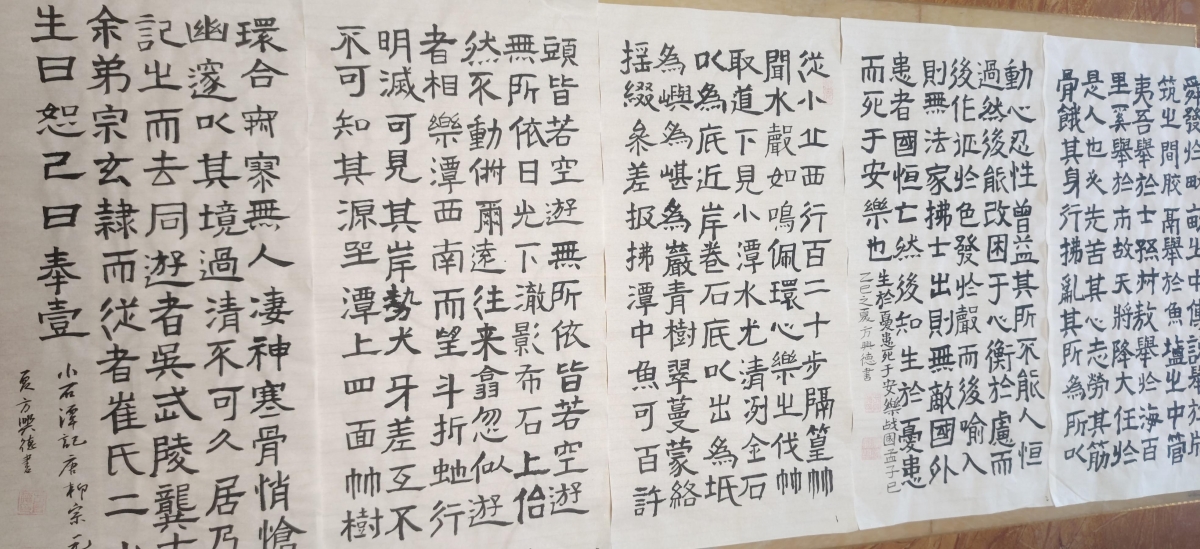 筑之間膠鬲舉於魚塩之中管
夷吾舉於士孫叔敖舉扵海百
里奚舉於市故天將降大任扵
是人也必先苦其心志勞其筋
骨餓其身行拂亂其所為所以
動心忍性曾益其所不能人恒
過然後能改困于心衡扵慮而
後作征扵色發扵聲而後喻入
則無法家拂士出則無敵國外
患者國恒亡然後知生於憂患
而死于安樂也
生於憂患死于安樂战国孟子
乙巳之夏方興德書
從小丘西行百二十步隔篁竹
聞水聲如鳴佩環心樂之伐竹
取道下見小潭水尤清冽全石
以為底近岸卷石底以出為坻
為嶼為嵁為巖青樹翠蔓蒙絡
揺綴參差披拂潭中魚可百許
頭皆若空遊無所依皆若空遊
無所依日光下澈影布石上佁
然不動俶爾遠往来翕忽似遊
者相樂潭西南而望斗折虵行
明滅可見其岸勢犬牙差互不
不可知其源坐潭上四面竹樹
環合寂寥無人凄神寒骨悄愴
幽邃以其境過清不可久居乃
記之而去同遊者吳武陵龔
余弟宗玄隸而從者崔氏二
生曰恕己曰奉壹
小石潭記唐柳宗元
夏方興德書